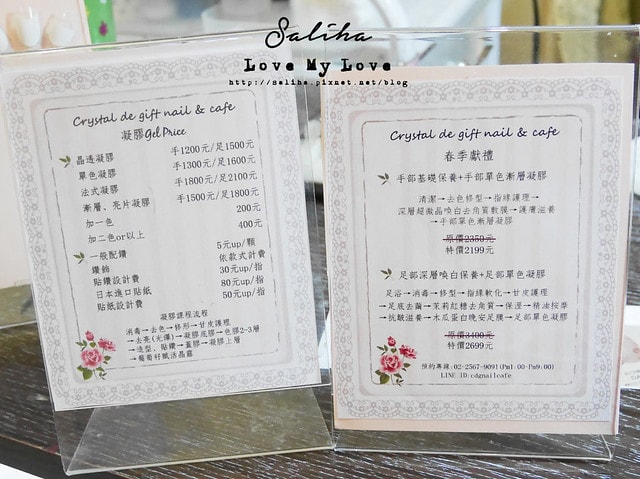 Saliha
Love My Love
http://saliha.pixnet.net/blog
Crystal de gift nail & cafe
凝膠Gel Price
晶透凝膠 手1200元/足1500元
單色凝膠 手1300元/足1600元
法式凝膠 手1800元/足2100元
漸層、亮片凝膠 手1500元/足1800元
加一色 200元
加二色or以上 400元
一般配鑽 5元up/顆
鑽飾 依款式計費
貼鑽設計費 30元up/指
日本進口貼紙 80元up/指
貼紙設計費 50元up/指
凝膠課程流程
消毒→去色→修形→甘皮護理
→去亮(光澤)→凝膠底膠→色膠2~3層
→造型、貼鑽→蓋膠→凝膠上層
→葡萄籽賦活晶露
Crystal de gift nail & cafe
春季獻禮
手部基礎保養+手部單色漸層凝膠
清潔→去色修型→指緣護理→
深層超微晶喚白去角質敷膜→護膚滋養
→手部單色漸層凝膠
原價2350元
特價2199元
足部深層喚白保養+足部單色凝膠
足浴→消毒→修型→指緣軟化→甘皮護理
→足底去繭→茉莉紅糖去角質→保溼→精油按摩
→抗皺滋養→木瓜蛋白晚安足膜→足部單色凝膠
原價3400元
特價2699元
預約專線:02-2567-9091(Pm1:00-Pm9:00)
LINE ID:cdgnailcafe